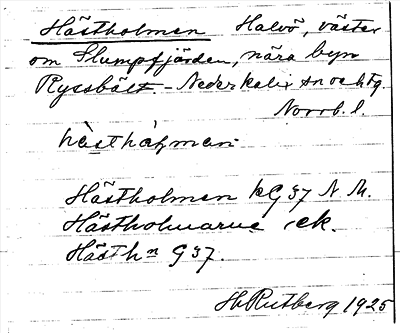 Hästholmen Halvö, väster
om Slumpfjärden, nära byn
Ryssbält. - Nederkalix sn och tg.
Norrb. l.
hästhåɫmen
Hästholmen kG 37 N M.
Hästholmarne ek.
Hästhn G 37.
Hb Rutberg 1925